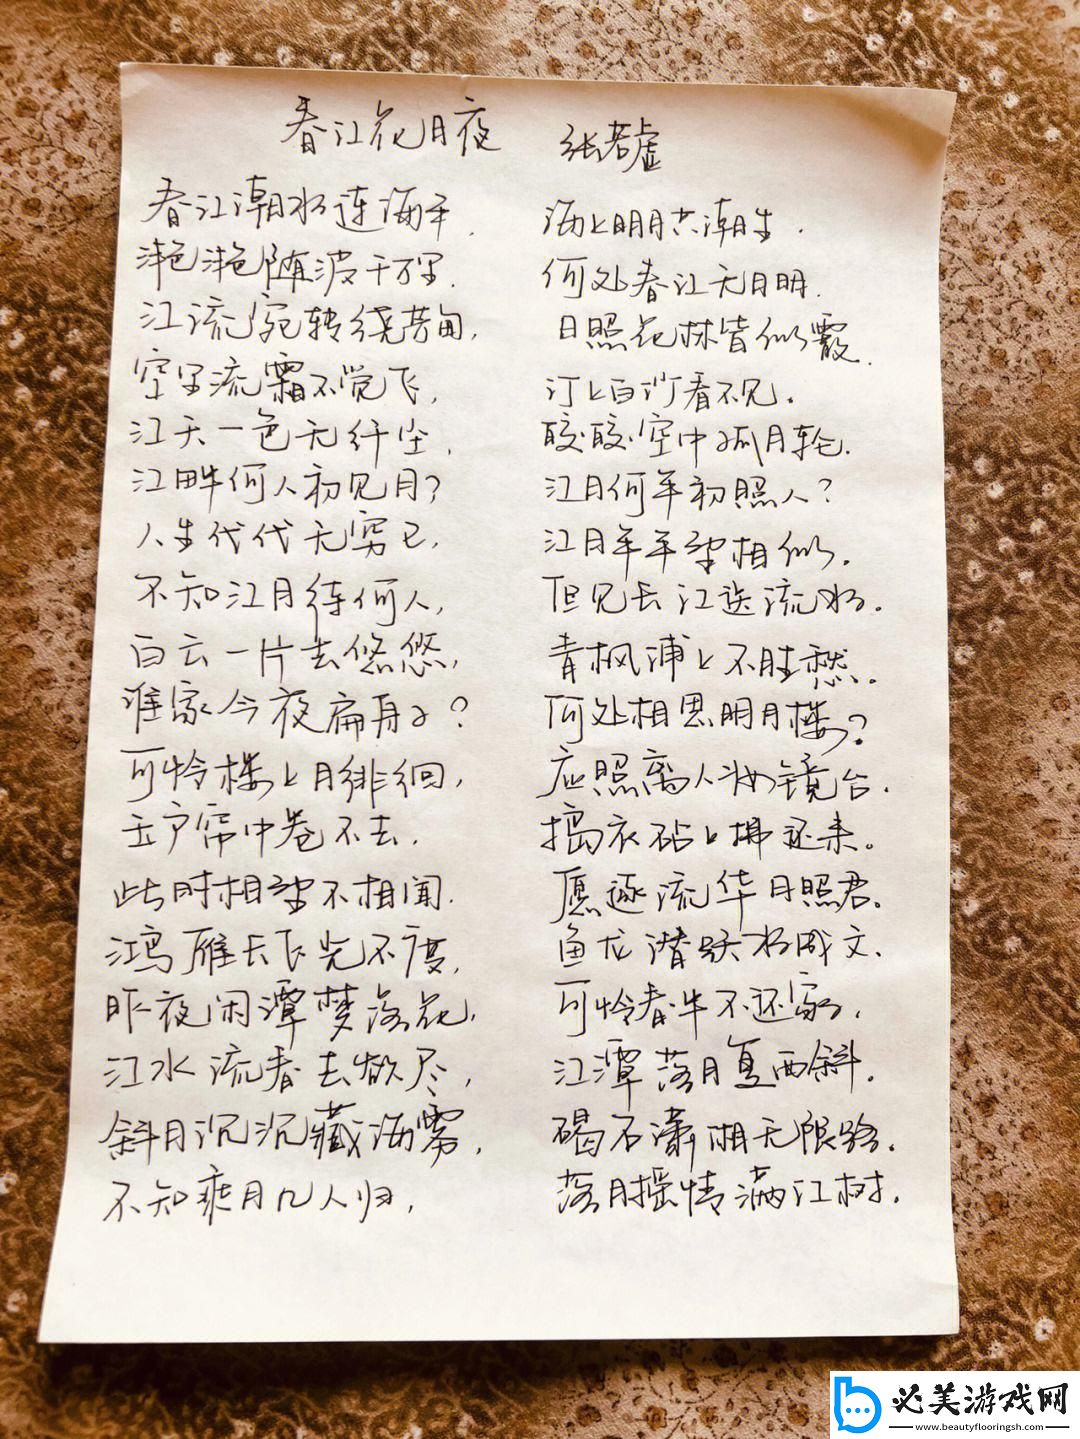 春江花月夜 张若虚
春江潮水连海平, 海上明月共潮生.
滟滟随波千万里. 何处春江无月明.
江流宛转绕芳甸, 月照花林皆似霰.
空里流霜不觉飞, 汀上白沙看不见.
江天一色无纤尘, 皎皎空中孤月轮.
江畔何人初见月? 江月何年初照人?
人生代代无穷已, 江月年年望相似.
不知江月待何人, 但见长江送流水.
白云一片去悠悠, 青枫浦上不胜愁.
谁家今夜扁舟子? 何处相思明月楼?
可怜楼上月徘徊, 应照离人妆镜台.
玉户帘中卷不去. 捣衣砧上拂还来.
此时相望不相闻. 愿逐流华月照君.
鸿雁长飞光不度, 鱼龙潜跃水成文.
昨夜闲潭梦落花, 可怜春半不还家.
江水流春去欲尽, 江潭落月复西斜.
斜月沉沉藏海雾, 碣石潇湘无限路.
不知乘月几人归, 落月摇情满江树.
必美游戏网
www.beautyflooringsh.com